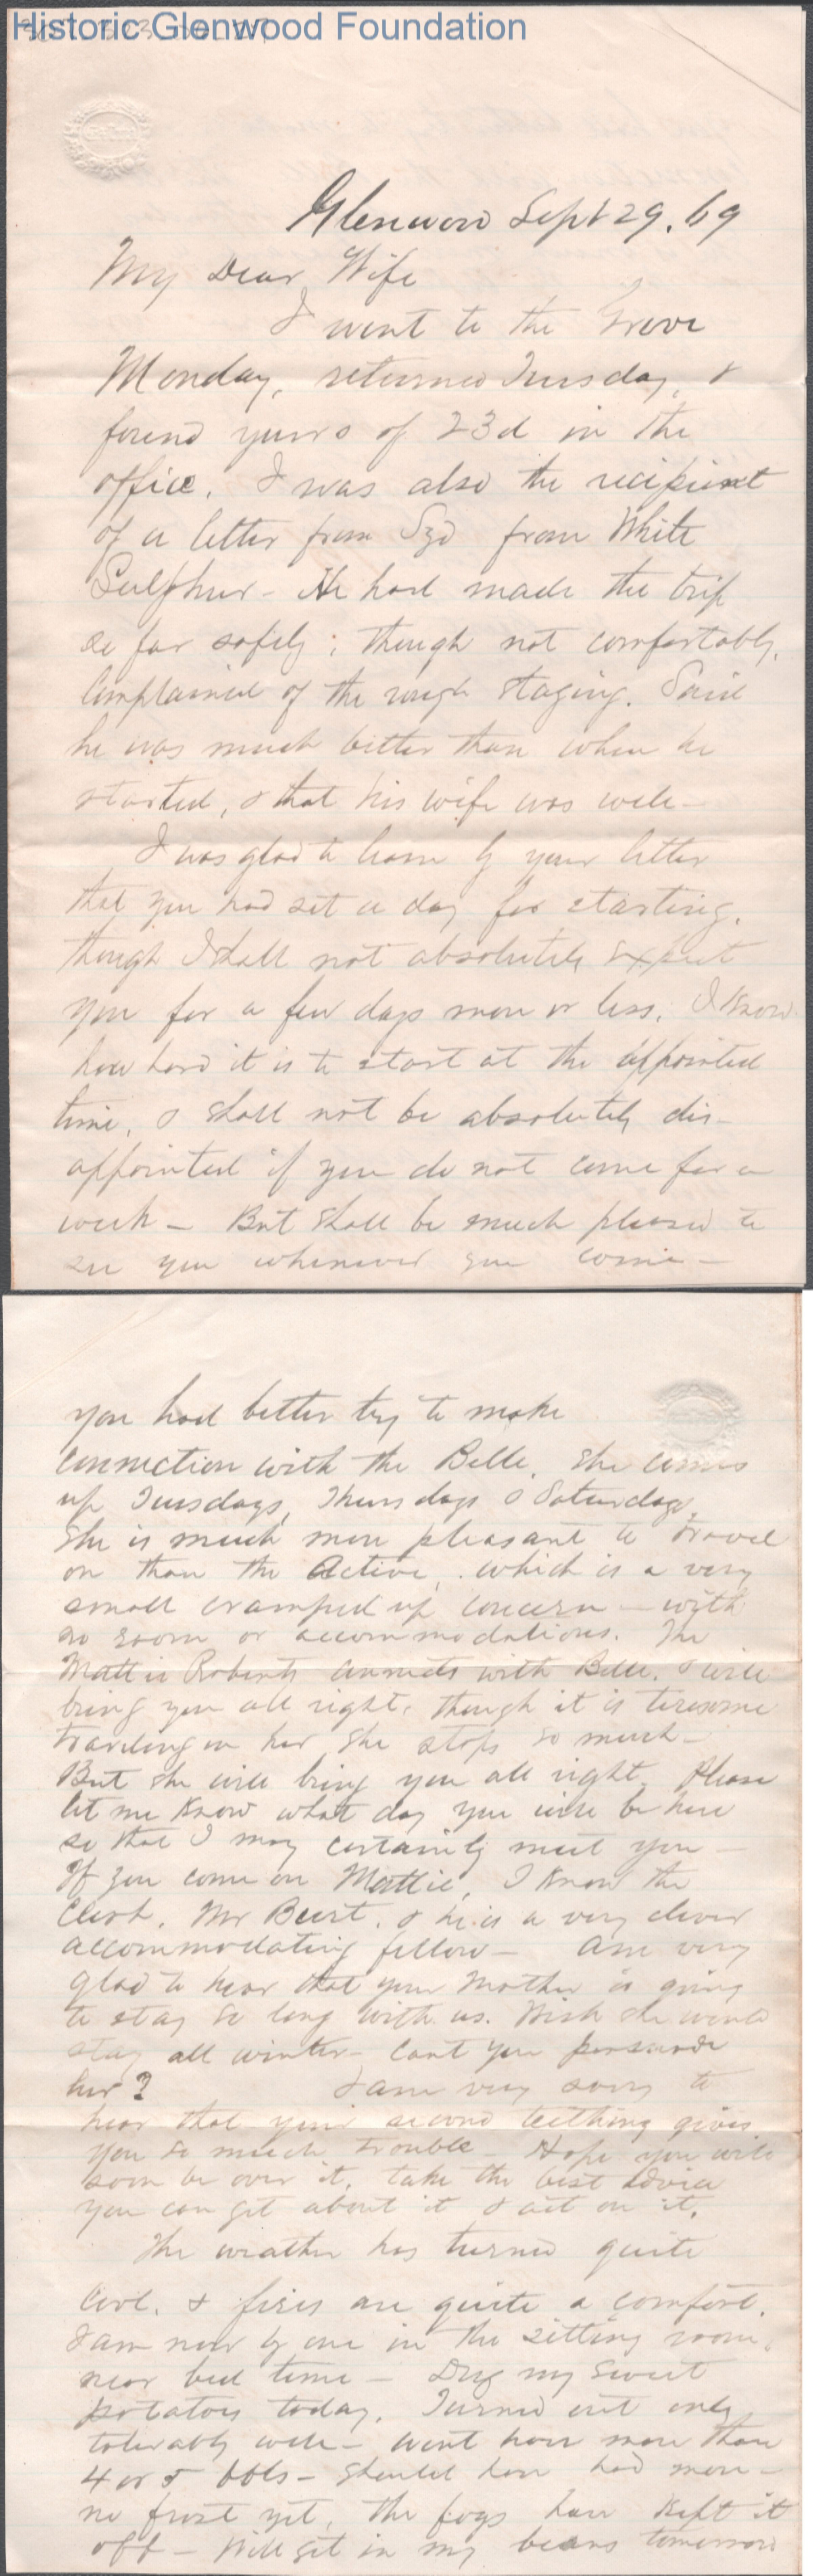 Historic Glenwood Foundation
Glenwood Sept 29. 69
My Dear Wife
I went to the Grove
Monday, returned Tuesday, &
found yours of 23d in the
office. I was also the recipient
of a letter from Syd from White
Sulphur - He had made the trip
so far safely; though not comfortably.
Complained of the rough staging. Said
he was much better than when he
started, & that his wife was well -
I was glad to learn by your letter
that you had set a day for starting.
though I shall not absolutely expect
you for a few days more or less. I know
how hard it is to start at the appointed
time, & shall not be absolutely dis-
appointed if you do not come for a
week - But shall be much pleased to
see you whenever you come -
you had better try to make
connection with the Belle. She comes
up Tuesdays, Thursdays & Saturdays.
She is much more pleasant to travel
on than the Active, which is a very
small cramped up concern - with
no room or accommodations. The
Mattie Roberts connects with Belle. & will
bring you all right, though it is tiresome
traveling on her she stops so much -
But she will bring you all right. Please
let me know what day you will be here
so that I may certainly meet you -
If you come on Mattie, I know the
Clerk. Mr Burt. & he is a very clever
accommodating fellow - Am very
glad to hear that your Mother is going
to stay so long with us. Wish she would
stay all winter - Cant you persuade
her? I am very sorry to
hear that your second teething gives
you so much trouble - Hope you will
soon be over it. take the best advice
you can get about it & act on it.
The weather has turned quite
cool. & fires are quite a comfort.
I am now by one in the sitting room,
near bed time - Dug my sweet
potatoes today. Turned out only
tolerably well - wont have more than
4 or 5 bbls - should have had more -
no frost yet, the fogs have kept it
off - Will get in my beans tomorrow